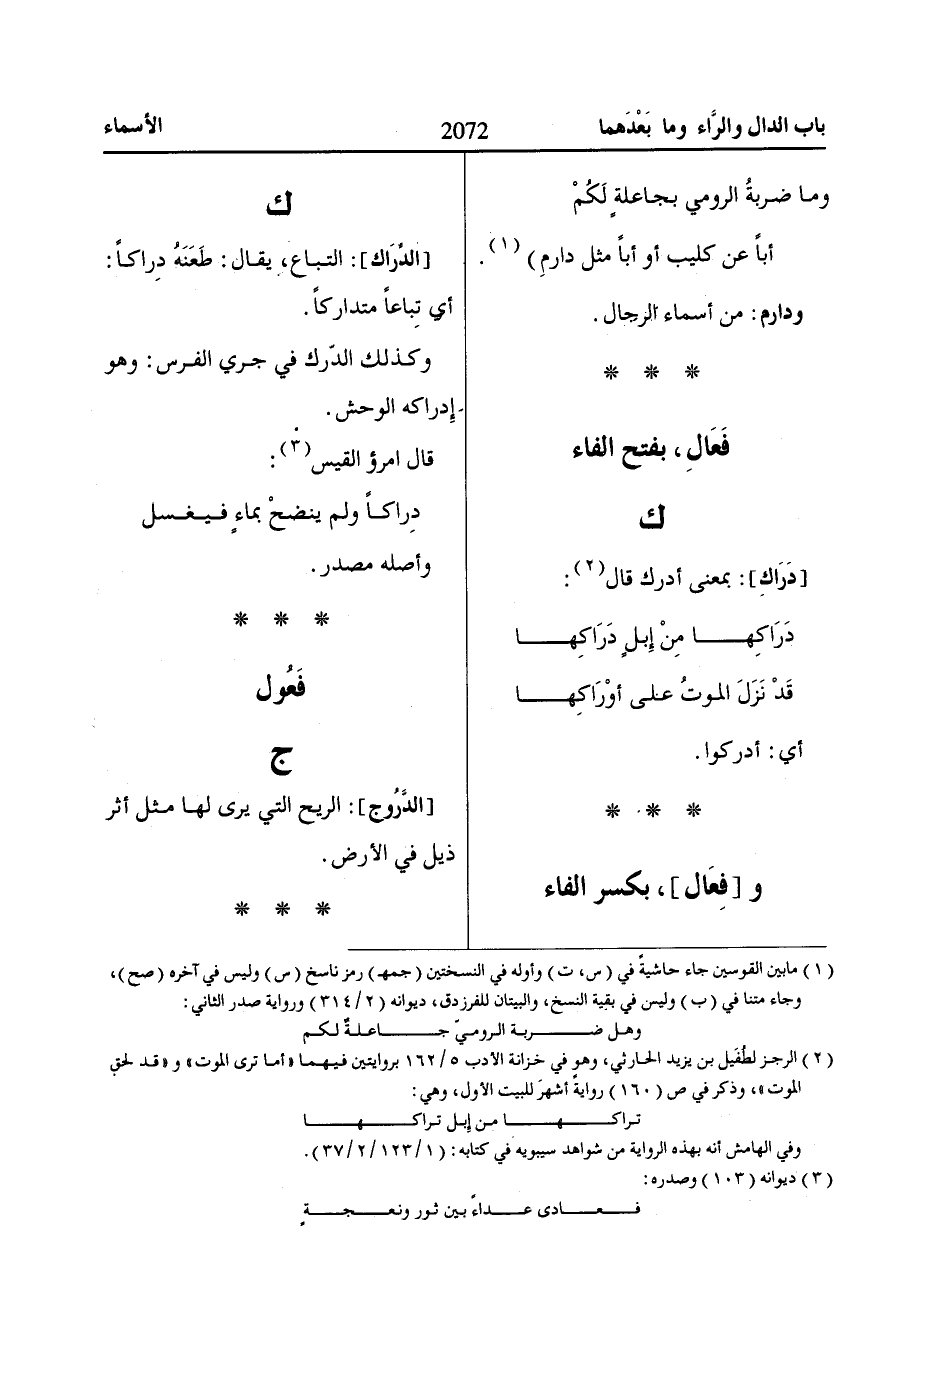 باب الدال والرَّاء وما بَعْدَهما
2072
الأسماء
وما ضربةُ الرومي بجاعلةٍ لَكُمْ
أباً عن كليب أو أباً مثل دارمِ) (١).
ودارم: من أسماء الرجال.
* * *
فَعَالِ، بفتح الفاء
ك
[دَرَاكِ]: بمعنى أدرك قال(٢):
دَرَاكِهـــا مِنْ إِبلٍ دَرَاكِهـــا
قَدْ نَزَلَ الموتُ على أوْرَاكِهـــا
أي: أدركوا.
* * *
و [فِعَال]، بكسر الفاء
ك
[الدِّرَاك]: التباع، يقال: طَعَنَهُ دِراكاً:
أي تِباعاً متداركاً.
وكذلك الدّرك في جري الفرس: وهو
إِدراكه الوحش.
قال امرؤ القيس(٣):
دِراكاً ولم ينضحْ بماءٍ فيغسل
وأصله مصدر.
* * *
فَعُول
ج
[الدَّرُوج]: الريح التي يرى لها مثل أثر
ذيل في الأرض.
* * *
(١) مابين القوسين جاء حاشيةً في (س، ت) وأوله في النسختين (جمهـ) رمز ناسخ (س) وليس في آخره (صح)،
وجاء متنا في (ب) وليس في بقية النسخ، والبيتان للفرزدق، ديوانه (٢/٣١٤) ورواية صدر الثاني:
وهل ضـــربة الروميّ جـــاعلةٌ لكم
(٢) الرجز لطُفَيل بن يزيد الحارثي، وهو في خزانة الأدب ٥/١٦٢ بروايتين فيهما «أما ترى الموت» و«قد لحق
الموت»، وذكر في ص (١٦٠) روايةً أشهرَ للبيت الأول، وهي:
تراكـــهـــا من إبل تراكـــهـــا
وفي الهامش أنه بهذه الرواية من شواهد سيبويه في كتابه: (١/١٢٣/٢/٣٧).
(٣) ديوانه (١٠٣) وصدره:
فـــعـــادى عـــداءً بين ثور ونعـــجـــةٍ